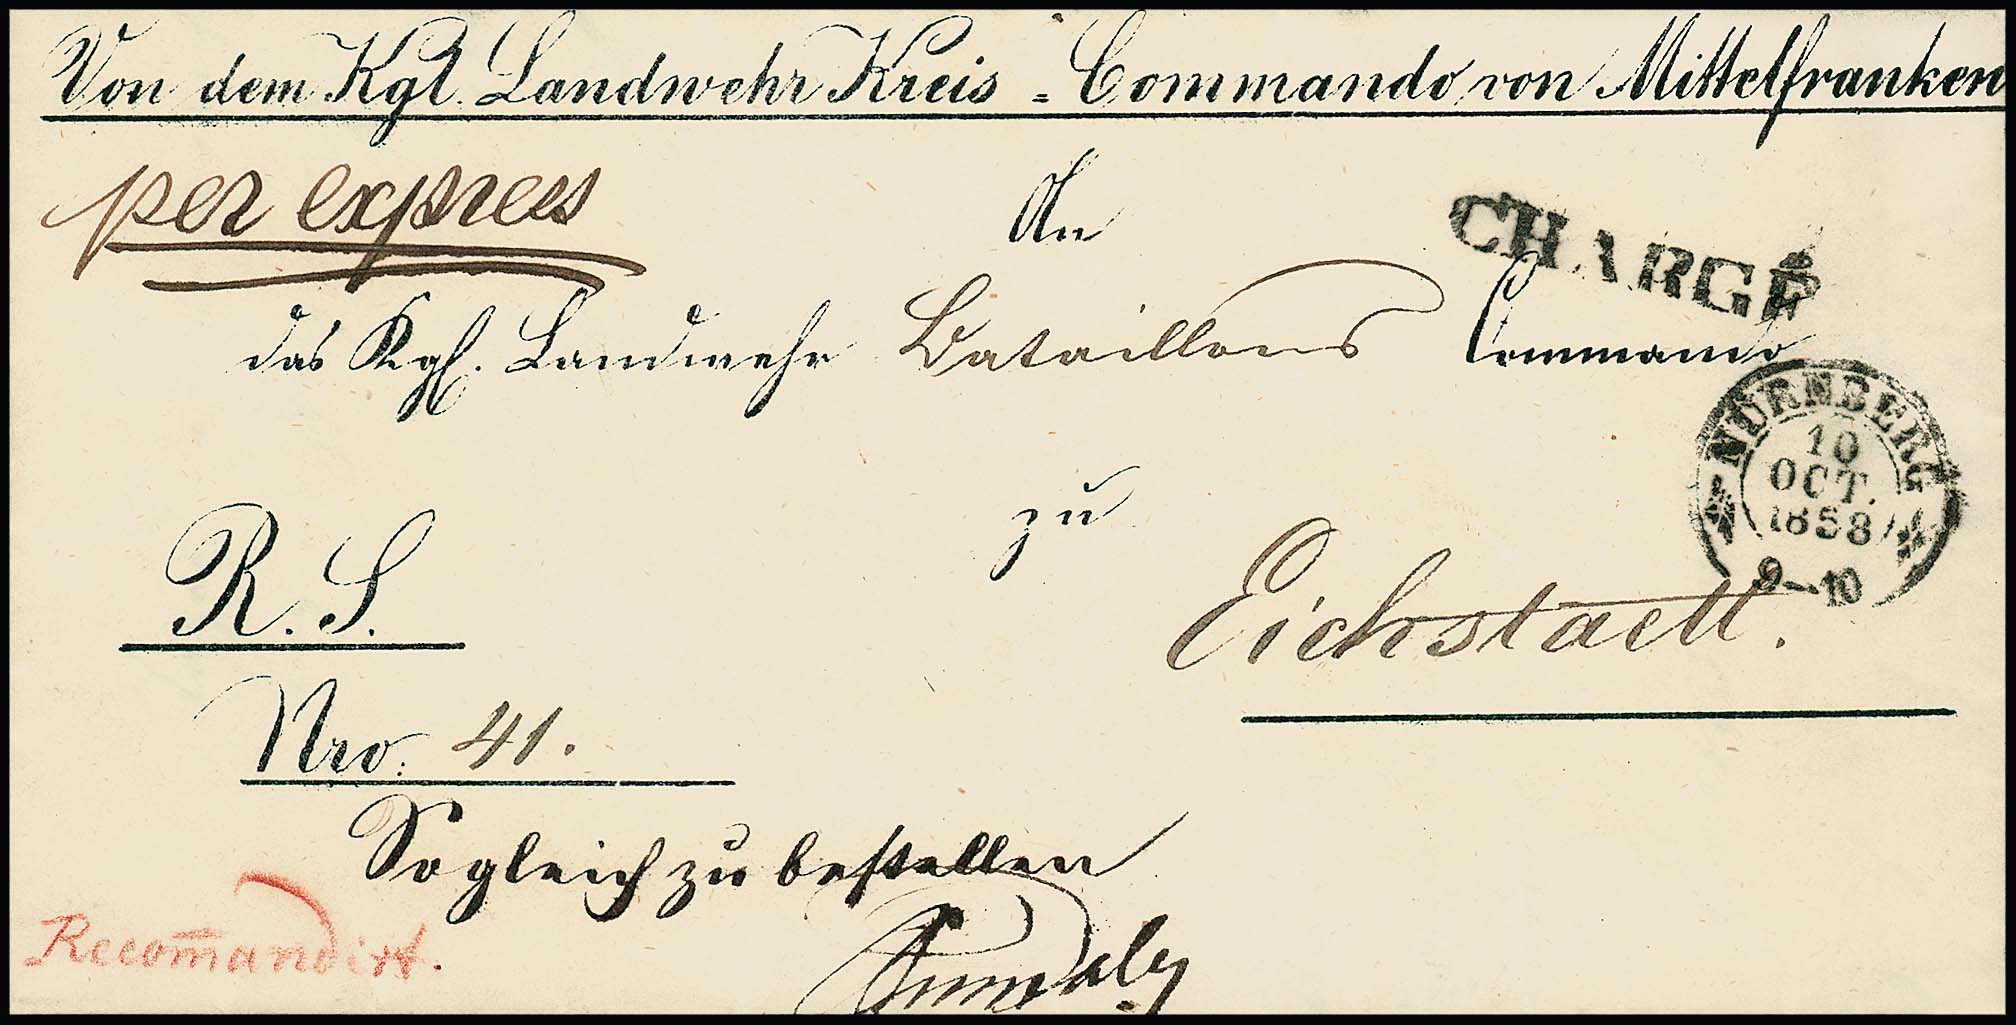 Von dem Kgl. Landwehr Kreis = Commando von Mittelfranken
per express
An
CHARGÉ
das Kgl. Landwehr Bataillons Commando
NÜRNBERG
10
OCT.
1858
9-10
zu
R. S.
Eichstaett.
Nro. 41.
Sogleich zu bestellen
Recom̅andirt.